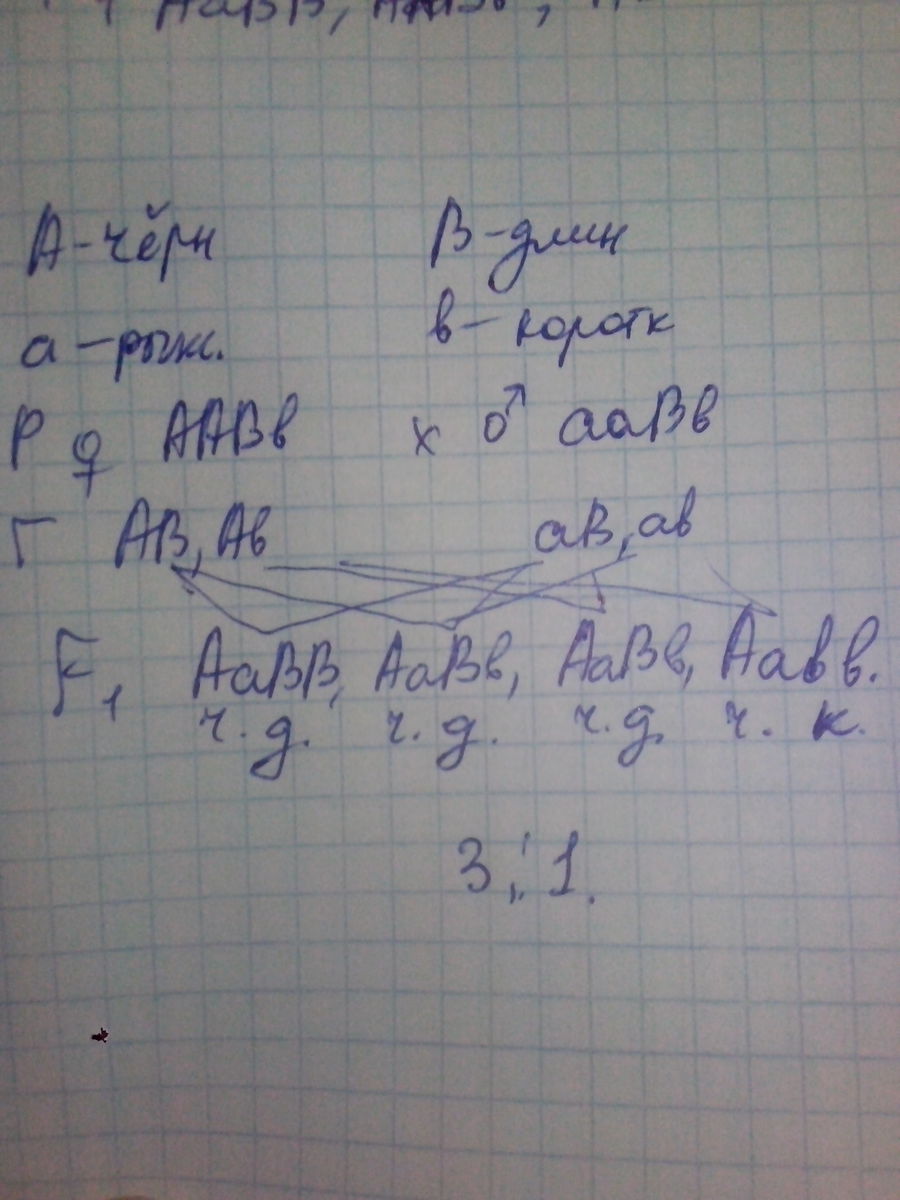 АаВВ,
А-чёрн В-длин
а-рыж. в-коротк
Р ♀ ААВв х ♂ ааВв
Г АВ, Ав аВ, ав
F1 АаВВ, АаВв, АаВв, Аавв.
ч.д. ч.д. ч.д. ч. к.
3:1.